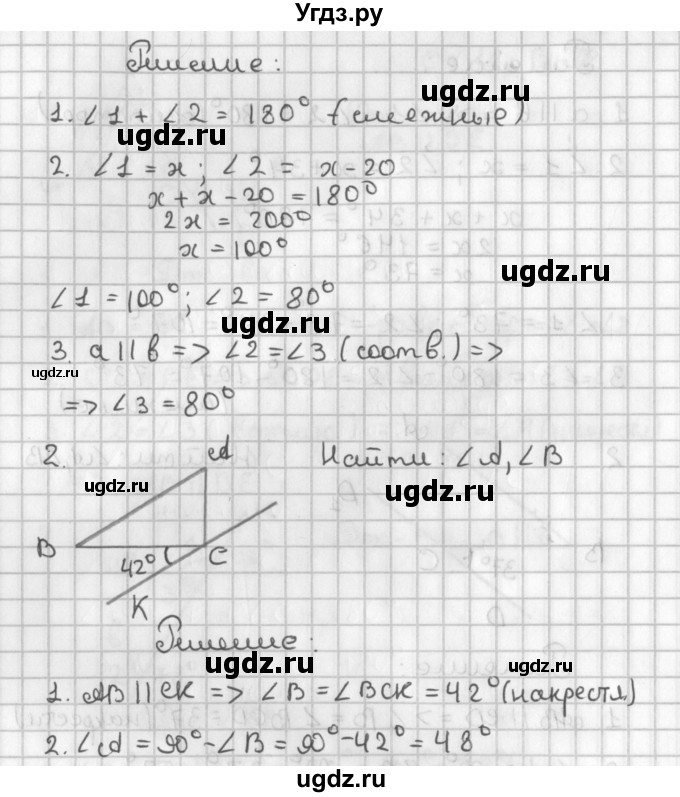 Угдз.ру
Решение:
ugdz.ru
1. ∠1 + ∠2 = 180° (смежные)
ugdz.ru
2. ∠1 = x; ∠2 = x-20
ugdz.ru
x + x - 20 = 180°
2x = 200°
x = 100°
ugdz.ru
∠1 = 100°; ∠2 = 80°
ugdz.ru
3. a || b => ∠2 = ∠3 (соотв.) =>
ugdz.ru
=> ∠3 = 80°
2.
A
Найти: ∠A, ∠B
ugdz.ru
ugdz.ru
B
42°
C
K
Решение:
ugdz.ru
ugdz.ru
1. AB || CK => ∠B = ∠BCK = 42° (накрестл.)
2. ∠A = 90° - ∠B = 90° - 42° = 48°
ugdz.ru